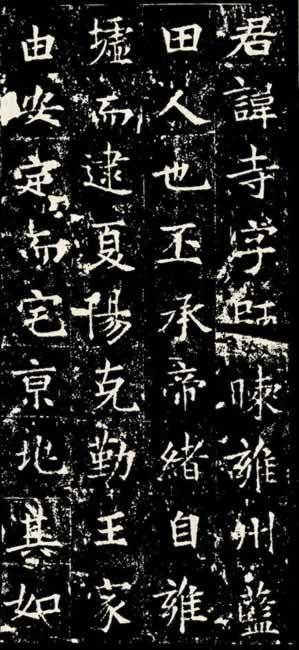 君諱寺字師暕雍州藍
田人也丕承帝緒自雍
墟而逮夏陽克勤王家
由安定而宅京兆其如